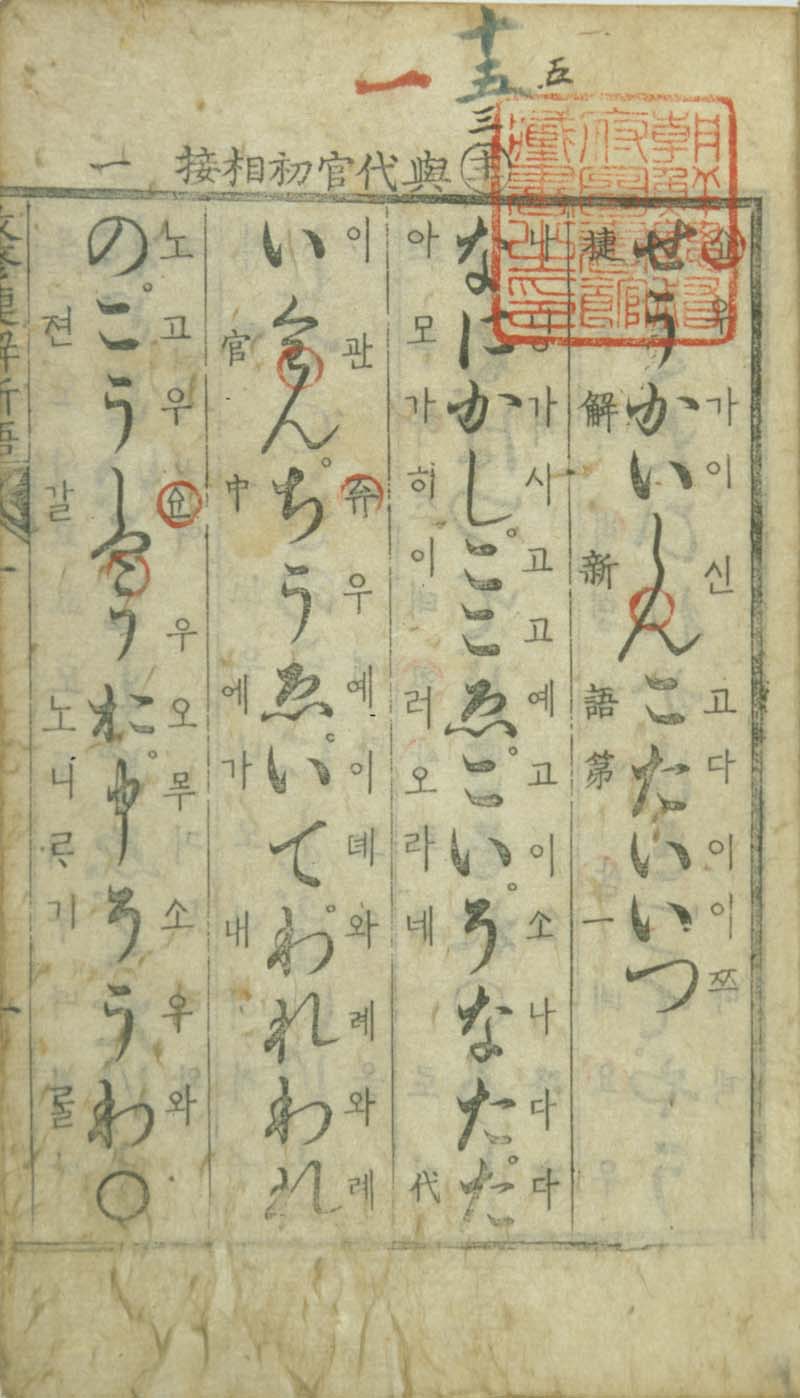 十五
五
一
三
與代官初相接 一
朝鮮總督府圖書館藏書之印
우가이신고다이이쯔
せうかいしんこたいいつ
捷解新語第一
나가시고고예고이소나다다
なにかしここゑこいそなたた
아모가히이러오라네 代
이관쥬우예이뎨와례와례
いくゎんちうゑいてわれわれ
官中에가 내
노고우우오무소우와
のこうしやうお申そうわ○
젼갈노니ᄅᆞ기롤